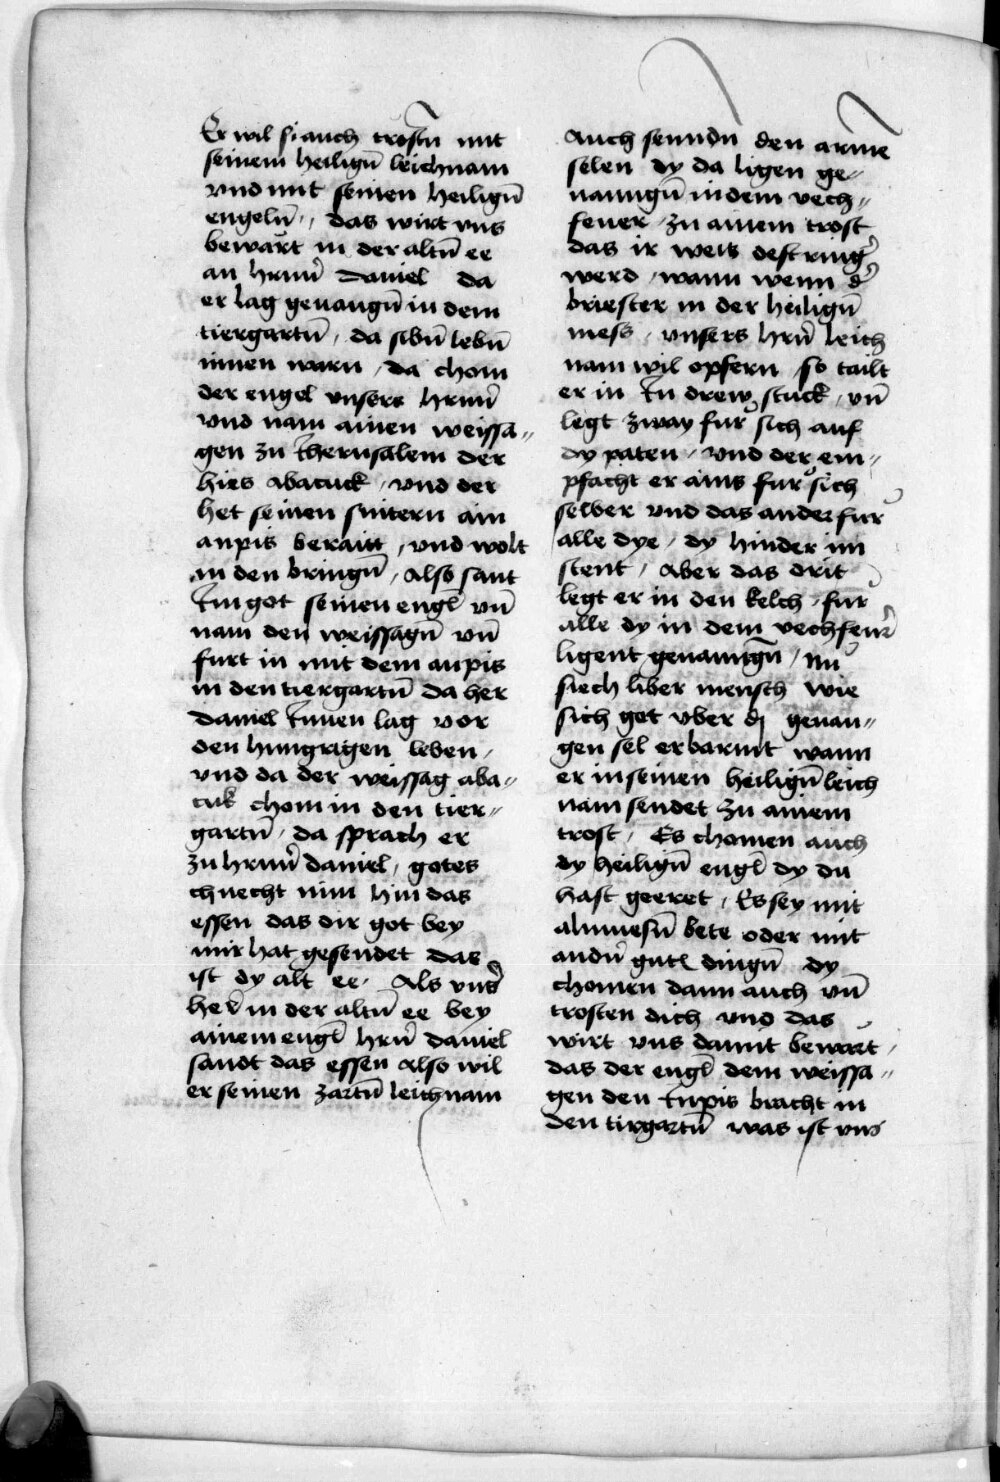 Er wil si auch trostn̄ mit
seinem heilign̄ leichnam
vnd mit seinen heilign̄
engeln̄ ,, das wirt vns
bewart in der altn̄ ee
an hrnn̄ daniel da
er lag geuangn̄ in dem
tiergartn̄ , da sibn̄ lebn̄
innen warn , da chom
der engel vnsers hrnn̄
vnd nam ainen weissa„
gen zu Iherusalem der
hies abacuck , vnd der
het seinen snitern ain
anpis beraitt , vnd wolt
in den bringn̄ , Also sant
Im got seinen engl̄ vn̄
nam den weissagn̄ vn̄
furt in mit dem anpis
in den tiergartn̄ da her
daniel Innen lag vor
den hungrigen leben ,
vnd da der weissag aba„
cuk chom in den tier„
gartn̄ , da sprach er
zu hrnn̄ daniel , gotes
chnecht nim hin das
essen das dir got bey
mir hat gesendet das
ist dy alt ee , Als vns̄
her̄ in der altn̄ ee bey
ainem engl̄ hrn̄ daniel
sandt das essen Also wil
er seinen zartn̄ leichnam
Auch senndn̄ den arme
selen dy da ligen ge„
uanngn̄ in dem vech„
feuer , zu ainem trost
das ir weis destrinḡ
werd , wann wenn d̄
briester in der heilign̄
mess , vnsers hrn̄ leich
nam wil opfern , so tailt
er in In drew stuck , vn̄
legt zway fur sich auf
dy paten , vnd der em„
pfacht er ains fur sich
selber vnd das ander fur
alle dye , dy hinder im
stent , Aber das drit
legt er in den kelch , fur
alle dy in dem vechfeur̄
ligent geuanngn̄ , Nu
siech liber mensch wie
sich got vber dy geuan„
gen sel erbarmt wann
er in seinen heilign̄ leich
nam sendet zu ainem
trost , Es chomen auch
dy heilign̄ engl̄ dy du
hast geeret , Es sey mit
almuesn̄ bete oder mit
andn̄ gutn̄ dingn̄ dy
chomen dann auch vn̄
trosten dich vnd das
wirt vns damit bewart ,
das der engl̄ dem weissa„
gen den Inpis bracht in
den tirgartn̄ was ist vns